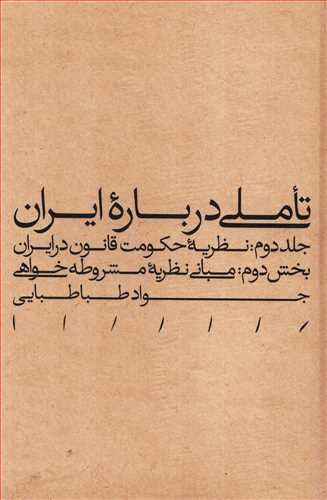 تأملی دربارۀ ایران
جلد دوم: نظریۀ حکومت قانون در ایران
بخش دوم: مبانی نظریۀ مشروطه‌خواهی
جواد طباطبایی